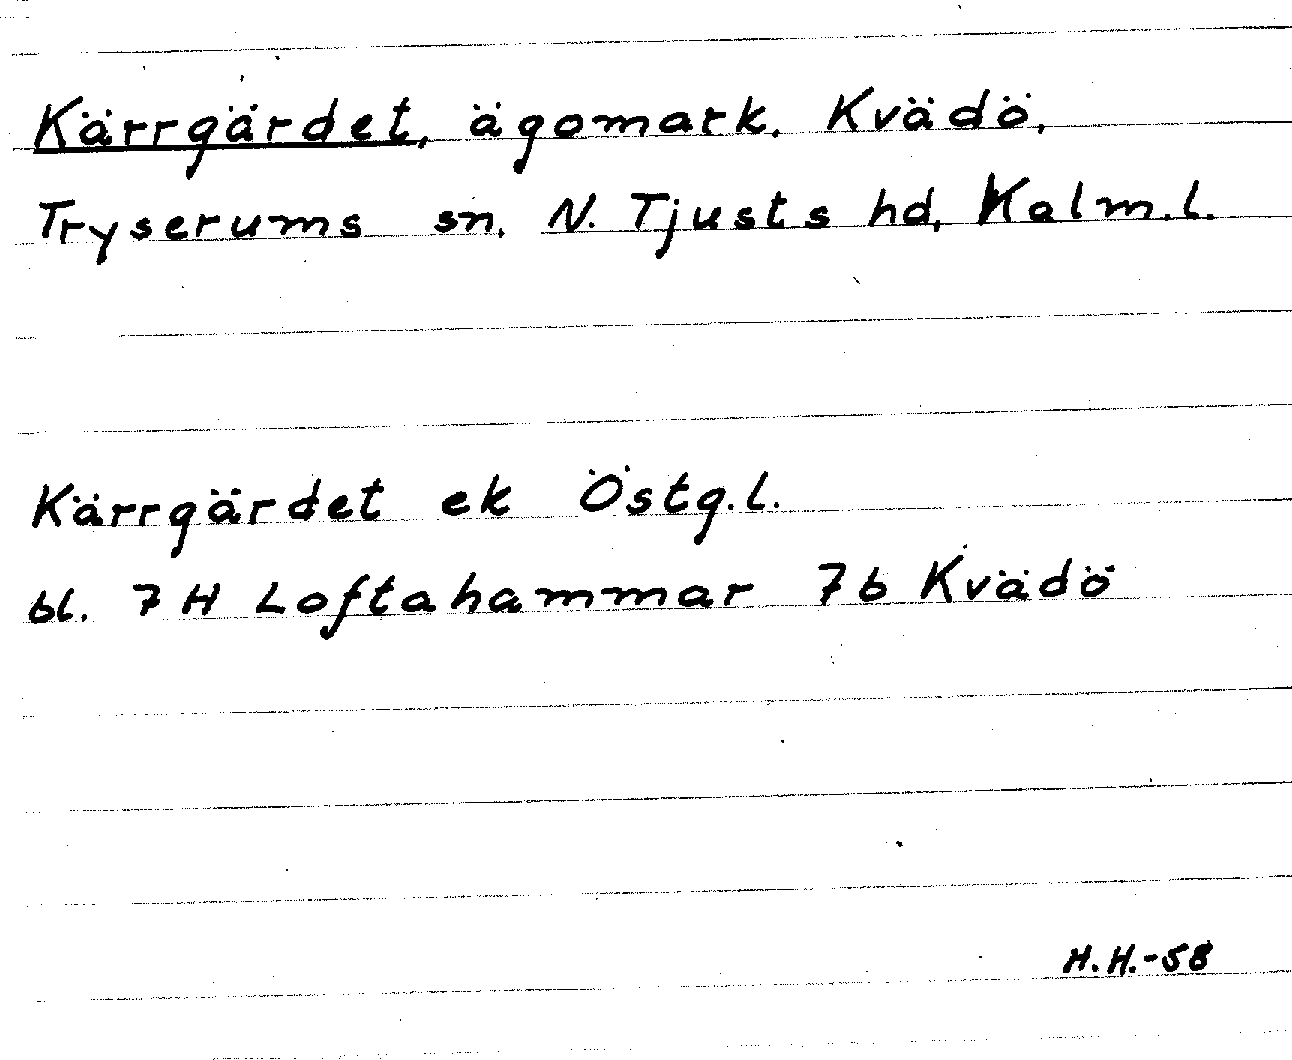 Kärrgärdet, ägomark, Kvädö,
Tryserums sn, N. Tjusts hd, Kalm.l.
Kärrgärdet ek Östg.l.
bl. 7 H Loftahammar 7b Kvädö
H.H.-58